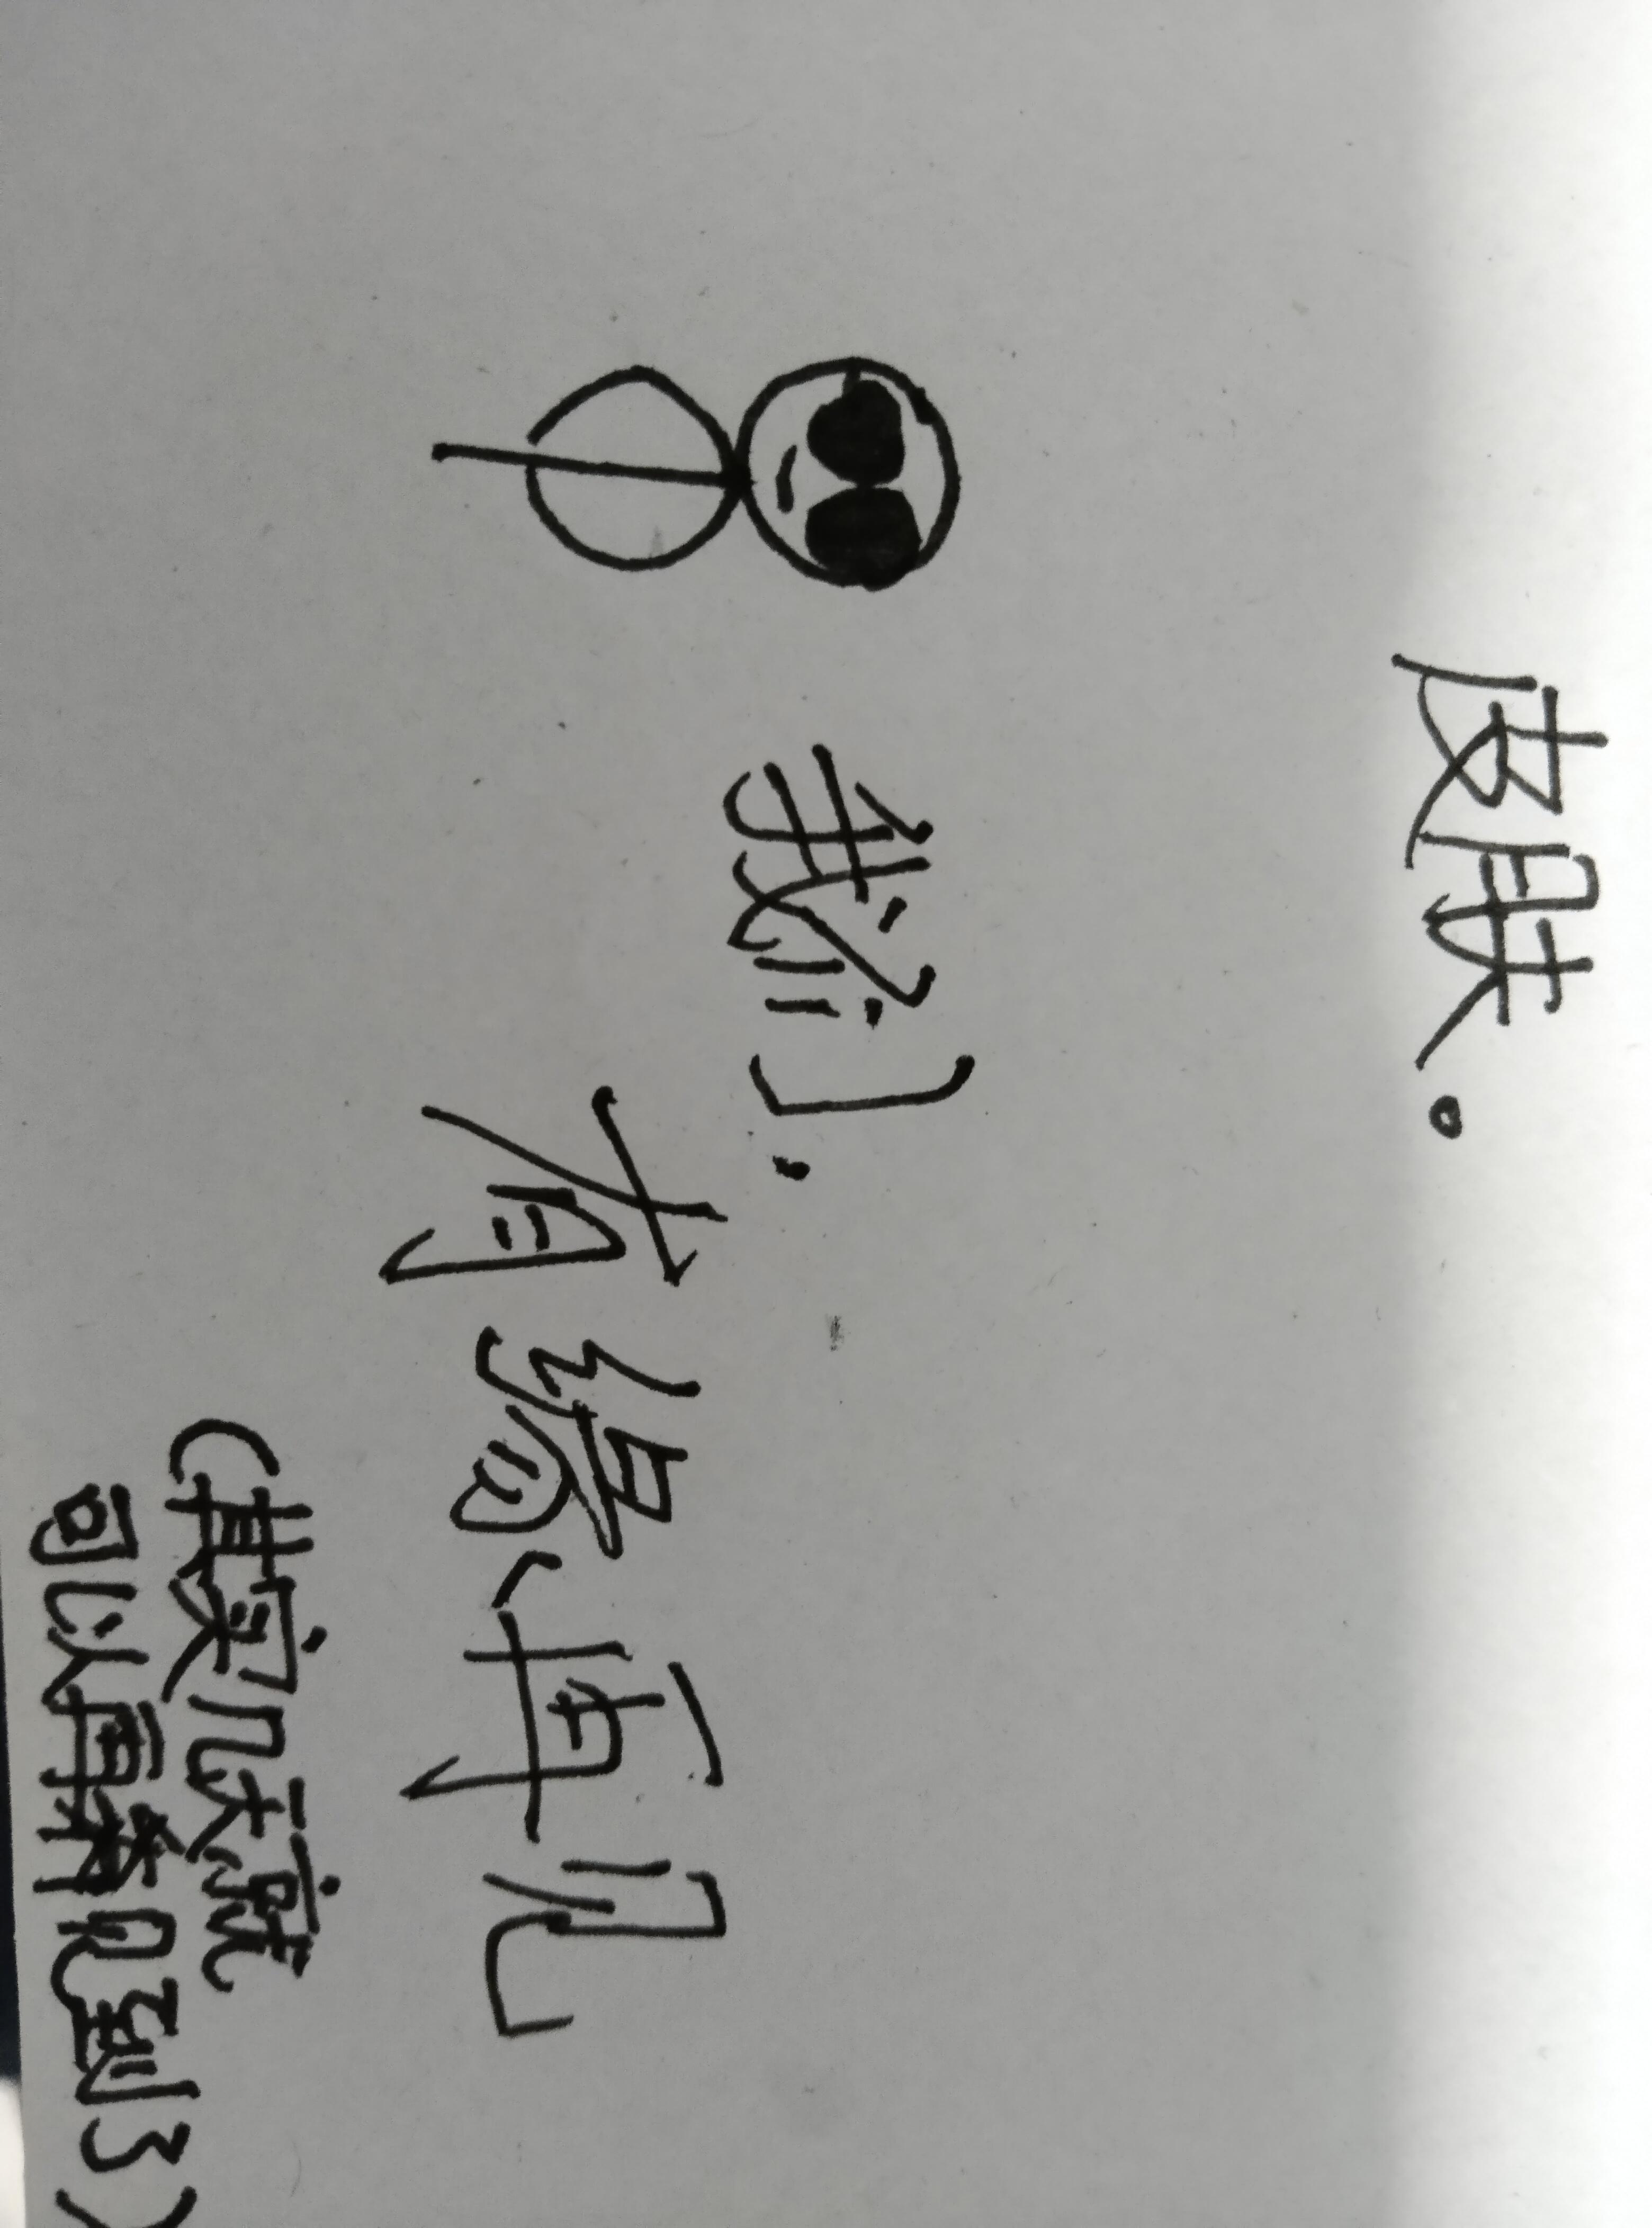 皮肤。
我们.
有缘再见
(其实几天就
可以再见到了)